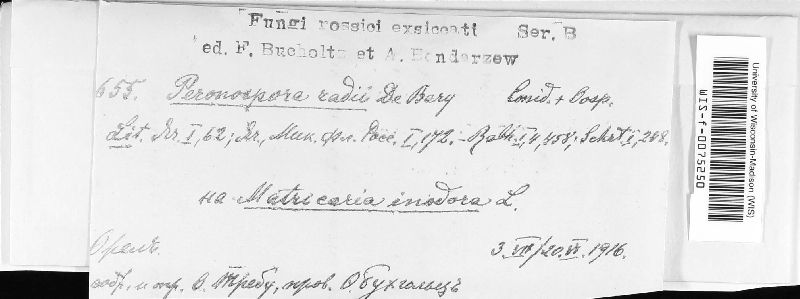 Fungi rossici exsiccati Ser. B
ed. F. Bucholtz et A. Bondarzew
655. Peronospora radii De Bary Conid. + Oosp.
Lit. Яч. I, 62; Яч., Мик. фл. Росс. I, 172. - Rabh. I, 4, 458; Schrt. I, 248.
на Matricaria inodora L.
Орелъ. 3.VII/20.VI.1916.
собр. и опр. О. Требу, пров. Ѳ Бухгольцъ
University of Wisconsin-Madison (WIS)
WIS-f-0075250